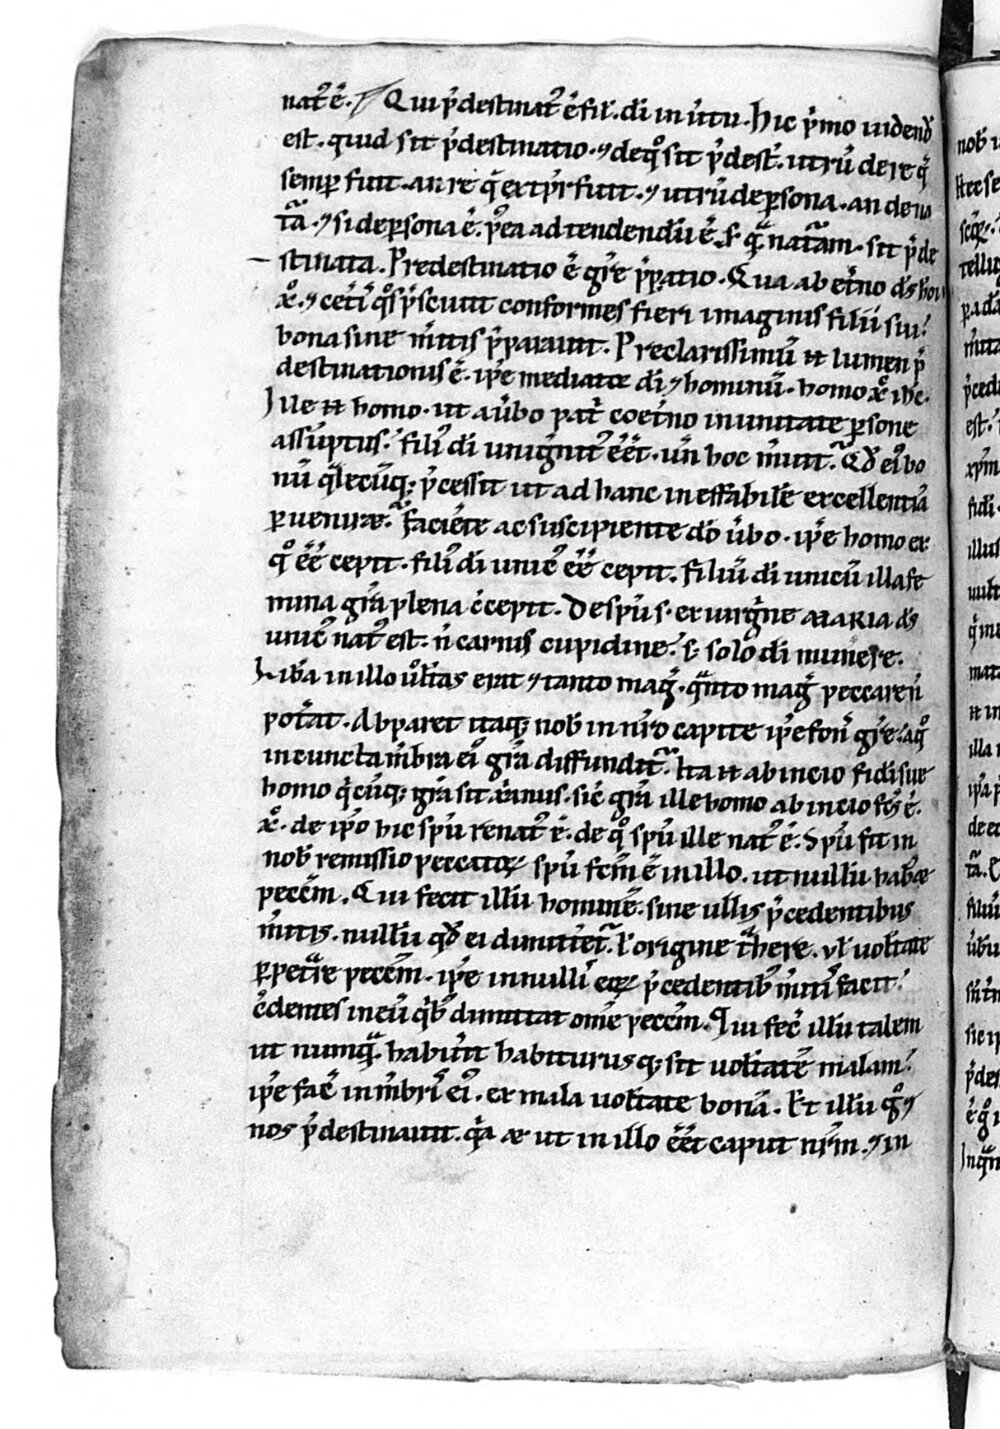 nat᷒ ē. Qui p̄destinat᷒ ē fil᷒. dī in v̄tu. hic p̄mo uidend̄
est. quid sit p̄destinatio. ⁊ de q̊ sit p̄dest̄. utrū de re q̄
semp̄ fuit. an re q̄ ex tp̄r fuit. ⁊ utrū de ꝑsona. an de na
tā. ⁊ si de ꝑsona ē. p̄ea adtendendū ē. s. q̄ natām. sit p̄de
stinata. Predestinatio ē grē p̄paratio. Qua ab et̄no dſ̄ hōi
xp̄o. ⁊ cet̄i q̊s p̄sciuit conformes fieri imaginis filii sui.
bona sine m̄itis p̄parauit. Preclarissimū ꝛ lumen p̄
destinationis ē. ip̄e mediator dī ⁊ hominū. homo xp̄c ih̄c.
Ille ꝛ homo. ut a ūbo pat̄ coet̄no in unitate ꝑsone
assūptus. fili᷒ dī unigenit᷒ ēēt. un̄ hoc m̄uit. Qd̄ ei᷒ bo
nū qlecūq; p̄cessit ut ad hanc ineffabilē excellentiā
ꝑueniret. faciēte ac suscipiente dō ūbo. ip̄e homo ex
q̊ ēē cepit. fili᷒ dī unic᷒ ēē cepit. filiū dī unicū illa fe
mina grā plena c̄cepit. De spū s. ex uirgine MARIA dſ̄
unic᷒ nat᷒ est. n̄ carnis cupidine. s. solo dī munere.
Lib̄a in illo uoltas erat ⁊ tanto maḡ. q̄nto maḡ peccare n̄
pot̄at. Apparet itaq; nob̄ in nr̄o capite ip̄e fons grē. a q̊
in cuncta m̄bra ei᷒ grā diffundit̄. Ita ꝛ ab incio fidi sue
homo q̄cūq; grā sit xp̄ianus. sic̄ grā ille homo ab incio fc̄s ē.
xp̄c. de ip̄o hic spū renat᷒ ē. de q̊ spū ille nat᷒ ē. Spū fit in
nob̄ remissio peccatoꝝ spū fc̄m ē in illo. ut nullū habēt
peccm̄. Qui fecit illū hominē. sine ullis p̄cedentibus
m̄itis. nullū qd̄ ei dimit̄et̄. ł origine t̄here. vł uoltate
ꝑpet̄re peccm̄. ip̄e in nullis eoꝝ p̄cedentib᷒ m̄itis facit.
c̄dentes in eū qb᷒ dimittat om̄e peccm̄. Qui fec̄ illū talem
ut numq̄. habūit habiturusq; sit uoltatē malam.
ip̄e fac̄ in m̄bris ei᷒. ex mala uoltate bonā. Et illū g̊ ⁊
nos p̄destinauit. q̄a ꝛ ut in illo ēēt caput nr̄m. ⁊ in